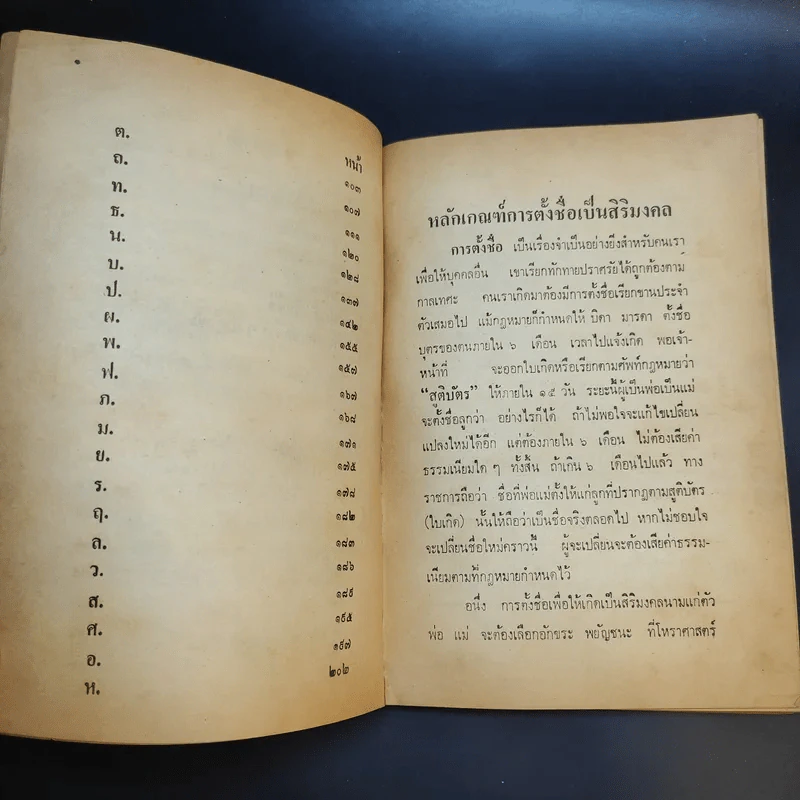 หน้า
ต. ๑๐๓
ถ. ๑๐๗
ท. ๑๑๑
ธ. ๑๒๐
น. ๑๒๘
บ. ๑๓๗
ป. ๑๔๒
ผ. ๑๕๕
พ. ๑๕๗
ฟ. ๑๖๗
ภ. ๑๖๘
ม. ๑๗๑
ย. ๑๗๕
ร. ๑๗๘
ฤ. ๑๘๒
ล. ๑๘๓
ว. ๑๘๖
ส. ๑๘๙
ศ. ๑๙๕
อ. ๑๙๗
ห. ๒๐๒
หลักเกณฑ์การตั้งชื่อเป็นสิริมงคล
การตั้งชื่อ เป็นเรื่องจำเป็นอย่างยิ่งสำหรับคนเรา
เพื่อให้บุคคลอื่น เขาเรียกทักทายปราศรัยได้ถูกต้องตาม
กาลเทศะ คนเราเกิดมาต้องมีการตั้งชื่อเรียกขานประจำ
ตัวเสมอไป แม้กฎหมายก็กำหนดให้ บิดา มารดา ตั้งชื่อ
บุตรของตนภายใน ๖ เดือน เวลาไปแจ้งเกิด พอเจ้า-
หน้าที่ จะออกใบเกิดหรือเรียกตามศัพท์กฎหมายว่า
“สูติบัตร” ให้ภายใน ๑๕ วัน ระยะนี้ผู้เป็นพ่อเป็นแม่
จะตั้งชื่อลูกว่า อย่างไรก็ได้ ถ้าไม่พอใจจะแก้ไขเปลี่ยน
แปลงใหม่ได้อีก แต่ต้องภายใน ๖ เดือน ไม่ต้องเสียค่า
ธรรมเนียมใด ๆ ทั้งสิ้น ถ้าเกิน ๖ เดือนไปแล้ว ทาง
ราชการถือว่า ชื่อที่พ่อแม่ตั้งให้แก่ลูกที่ปรากฏตามสูติบัตร
(ใบเกิด) นั้นให้ถือว่าเป็นชื่อจริงตลอดไป หากไม่ชอบใจ
จะเปลี่ยนชื่อใหม่คราวนี้ ผู้จะเปลี่ยนจะต้องเสียค่าธรรม-
เนียมตามที่กฎหมายกำหนดไว้
อนึ่ง การตั้งชื่อเพื่อให้เกิดเป็นสิริมงคลนามแก่ตัว
พ่อ แม่ จะต้องเลือกอักขระ พยัญชนะ ที่โหราศาสตร์